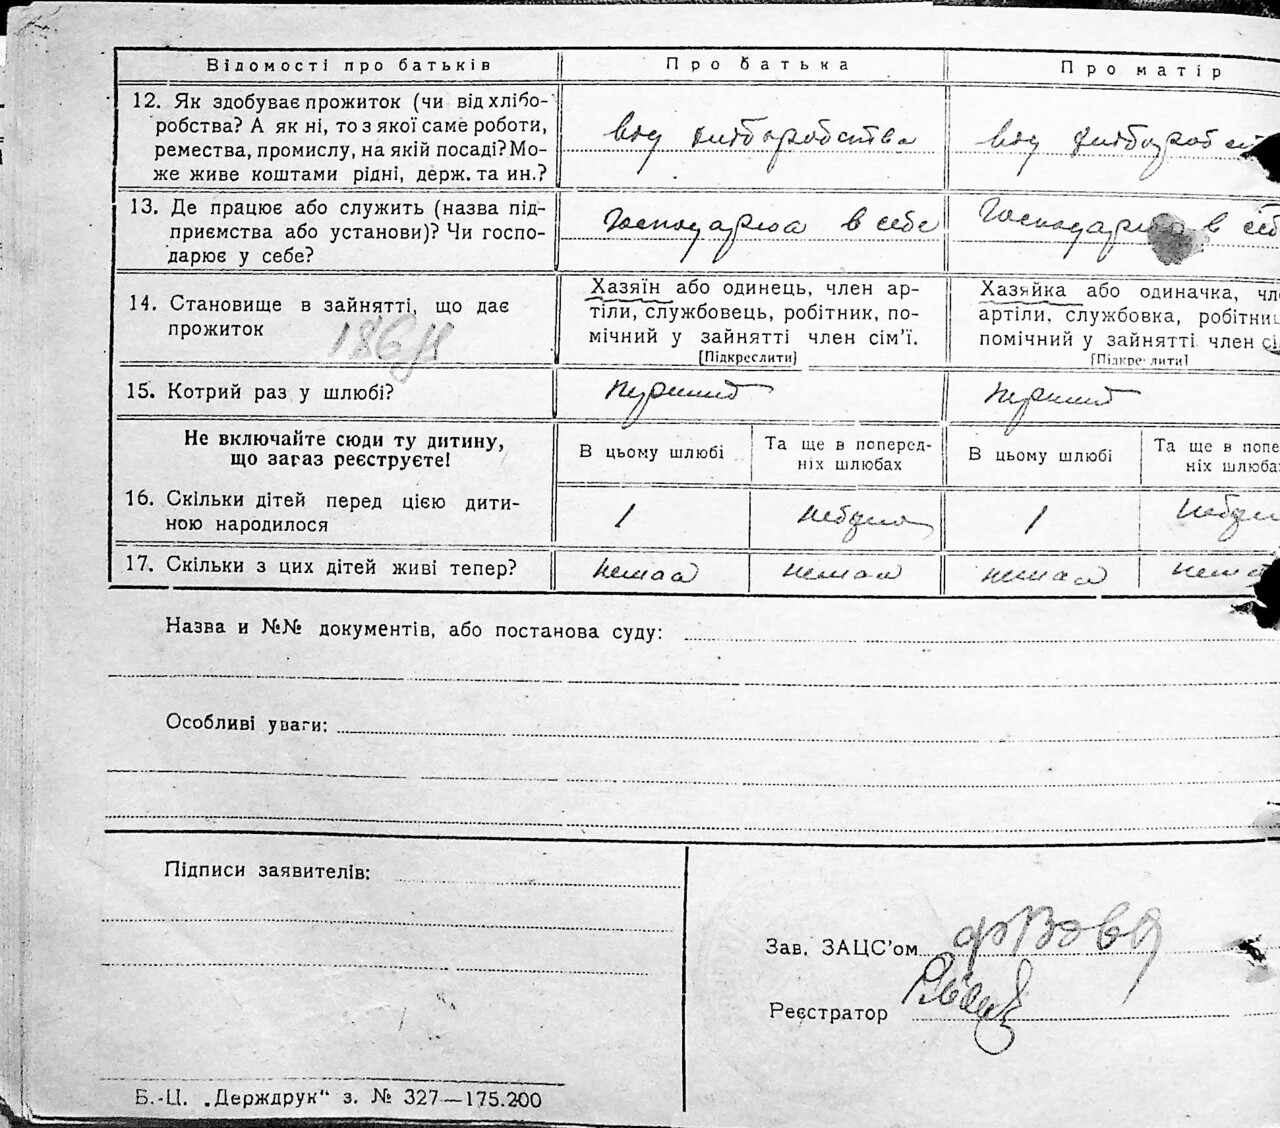 Відомості про батьків
Про батька
Про матір
12. Як здобуває прожиток (чи від хлібо-
робства? А як ні, то з якої саме роботи,
ремества, промислу, на якій посаді? Мо-
же живе коштами рідні, держ. та ин.?
від хліборобства
від хліборобст
13. Де працює або служить (назва під-
приємства або установи)? Чи госпо-
дарює у себе?
Господарює в себе
Господарює в себ
14. Становище в зайнятті, що дає
прожиток
Хазяїн або одинець, член ар-
тіли, службовець, робітник, по-
мічний у зайнятті член сім'ї.
[Підкреслити]
Хазяйка або одиначка, чл
артіли, службовка, робітни
помічний у зайнятті член сі
[Підкреслити]
15. Котрий раз у шлюбі?
перший
перший
Не включайте сюди ту дитину,
що загаз реєструєте!
В цьому шлюбі
Та ще в поперед-
ніх шлюбах
В цьому шлюбі
Та ще в попе
ніх шлюба
16. Скільки дітей перед цією дити-
ною народилося
1
небуло
1
небул
17. Скільки з цих дітей живі тепер?
немає
немає
немає
нема
Назва и №№ документів, або постанова суду:
Особливі уваги:
Підписи заявителів:
Зав. ЗАЦС'ом
Реєстратор
Б.-Ц. „Держдрук" з. № 327—175.200